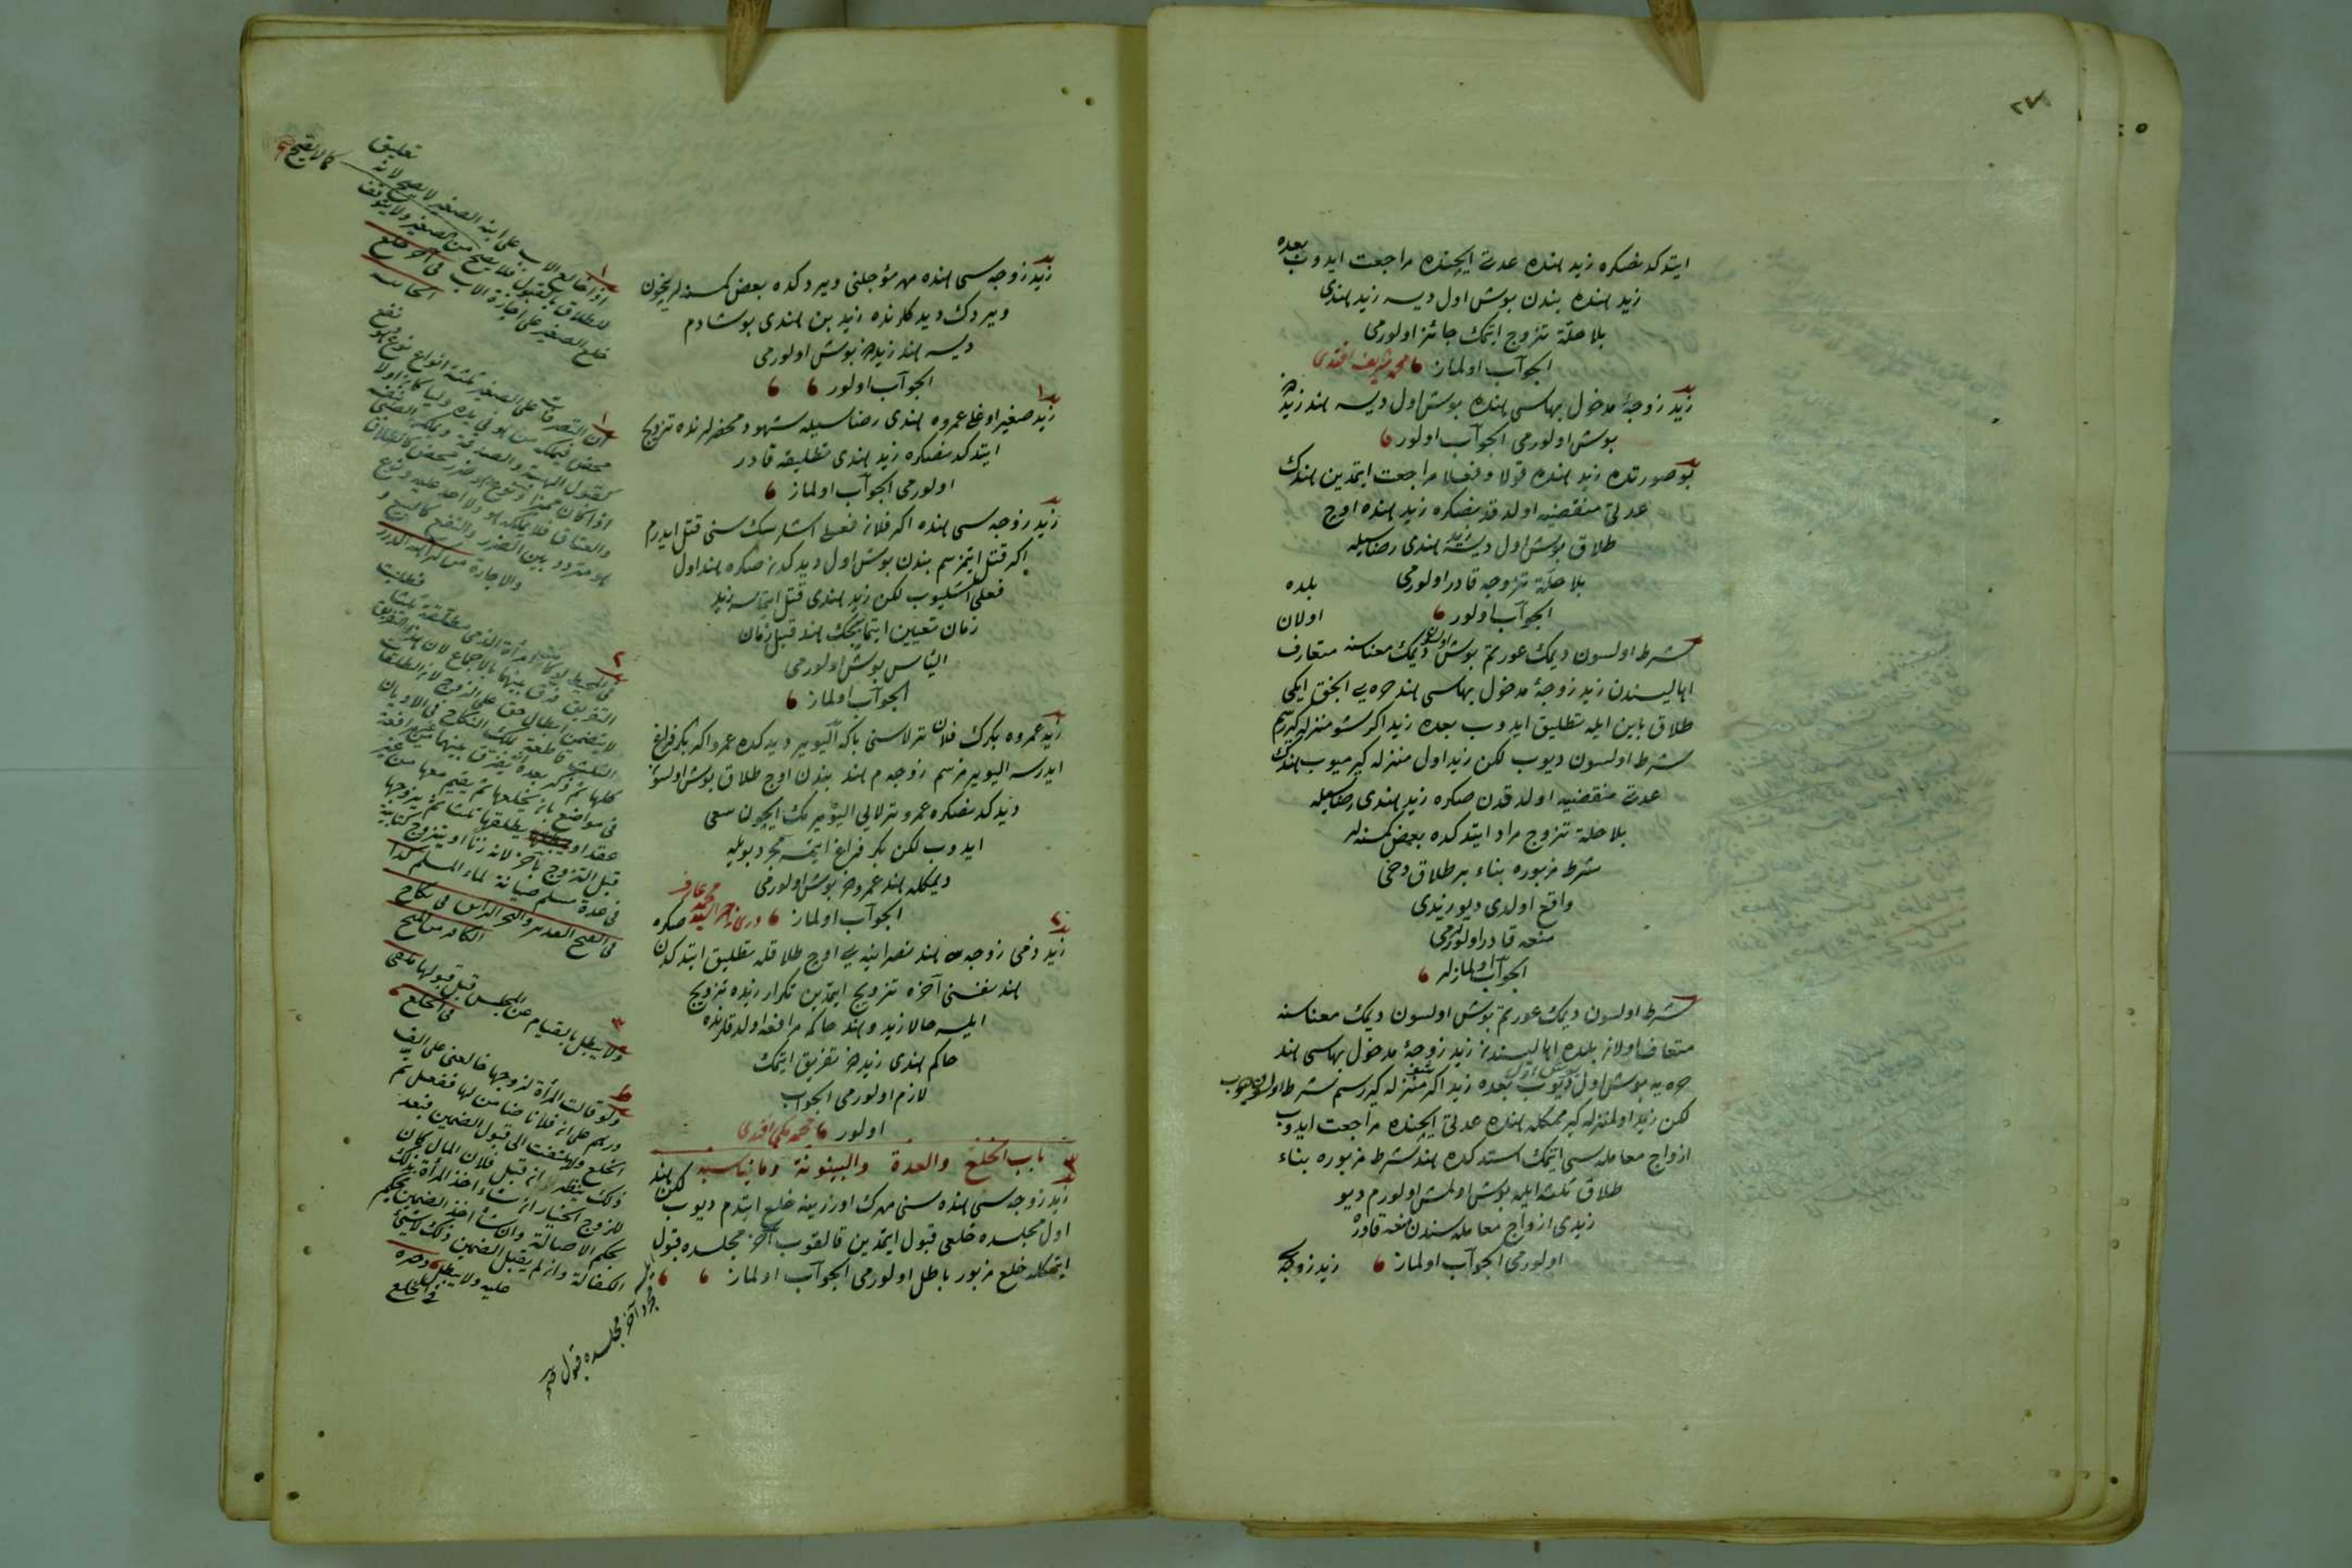 ٢٧
ايتدكدنصكره زيد هنده عدتى ايچنده مراجعت ايدوب بعده
زيد هنده بندن بوش اول ديسه زيد هندى
بلا حلة تزوج ايتمك جائز اولورمى
الجواب اولماز محمد شريف افندى
زيد زوجهٔ مدخول بهاسى هنده بوش اول ديسه هند زيددن
بوش اولورمى الجواب اولور
بو صورتده زيد هنده قولا وفعلا مراجعت ايتمدين هندك
عدتى منقضيه اولدقدنصكره زيد هنده اوچ
طلاق بوش اول ديسه زيد هندى رضاسيله
بلا حلة تزوجه قادر اولورمى
الجواب اولور
بلده
اولان
شرط اولسون ديمك عورتم بوش اولسون ديمك معناسنه متعارف
اهاليسندن زيد زوجهٔ مدخول بهاسى هند حره يى انجق ايكى
طلاق باين ايله تطليق ايدوب بعده زيد اكر شو منزله كيررسم
شرط اولسون ديوب لكن زيد اول منزله كيرميوب هندك
عدتى منقضيه اولدقدن صكره زيد هندى رضاسيله
بلا حلة تزوج مراد ايتدكده بعض كمسنه لر
شرط مزبوره بناء بر طلاق دخى
واقع اولدى ديو زيدى
منعه قادر اولورلرمى
الجواب اولمازلر
شرط اولسون ديمك عورتم بوش اولسون ديمك معناسنه
متعارف اولان بلده اهاليسندن زيد زوجهٔ مدخول بهاسى هند
حره يه بوش اول بوش اول ديوب بعده زيد اكر شو منزله كيررسم شرط اولسون ديوب
لكن زيد اول منزله كيرمكله هنده عدتى ايچنده مراجعت ايدوب
ازواج معامله سى ايتمك استدكده هند شرط مزبوره بناء
طلاق ثلثه ايله بوش اولمش اولورم ديو
زيدى ازواج معامله سندن منعه قادره
اولورمى الجواب اولماز
زيد زوجه
زيد زوجه سى هنده مهر مؤجلنى ويردكده بعض كمسنه لر نيچون
ويردك ديدكلرنده زيد بن هندى بوشادم
ديسه هند زيددن بوش اولورمى
الجواب اولور
زيد صغير اوغلى عمروه هندى رضاسيله شهود محضرلرنده تزويج
ايتدكدنصكره زيد هندى تطليقه قادر
اولورمى الجواب اولماز
زيد زوجه سى هنده اكر فلان فعلى اشلرسك سنى قتل ايدرم
اكر قتل ايتمزسم بندن بوش اول ديدكدن صكره هند اول
فعلى اشليوب لكن زيد هندى قتل ايتمسه زيد
زمان تعيين ايتمايجك هند قبل زمان
الياس بوش اولورمى
الجواب اولماز
زيد عمروه بكرك فلان ترلاسنى بكا اليوير ديدكده عمرو اكر بكر فراغ
ايدرسه اليويرمزسم زوجه م هند بندن اوچ طلاق بوش اولسون
ديدكدنصكره عمرو ترلايى اليويرمك ايچون سعى
ايدوب لكن بكر فراغ ايتمسه مجرد بويله
ديمكله هند عمرودن بوش اولورمى
الجواب اولماز
محمد عارف
زيد ذمى زوجه سى هند نصرانيه يى اوچ طلاقله تطليق ايتدكدن صكره
هند نفسنى آخره تزويج ايتمدين تكرار زيده تزويج
ايلسه حالا زيد وهند حاكمه مرافعه اولدقلرنده
حاكم هندى زيددن تفريق ايتمك
لازم اولورمى الجواب
اولور محمد مكى افندى
باب الخلع والعدة والبينونة وما يناسبه
زيد زوجه سى هنده سنى مهرك اوزرينه خلع ايتدم ديوب لكن هند
اول مجلسده خلعى قبول ايتمدين قالقوب آخر مجلسده قبول
ايتمكله خلع مزبور باطل اولورمى الجواب اولماز
مجرد آخر مجلسده قبول
تعليق
اذا خالع الاب على ابنه الصغير لا يصح لانه
للطلاق بالقبول فلا يصح من الصغير ولا يتوقف
خلع الصغير على اجازة الاب فى آخر خلع
الخانيه
ان التصرفات على الصغير ثلثة انواع نوع نفع
محض فيملكه من هو فى يده وليا كان اولا
كقبول الهبة والصدقة ويملكه الصبى نفسه
اذا كان مميزا ونوع هو ضرر محض كالطلاق
والعتاق فلا يملكه هو ولا احد عليه ونوع
هو متردد بين الضرر والنفع كالبيع و
والاجارة من كراهية الدرر
التفريق فرق بينهما بالاجماع لان هذا التفريق
لا يتضمن ابطال حق على الزوج لان الطلقات
الثلث قاطعة لملك النكاح فى الاديان
كلها ثم ذكر بعده يفرق بينهما من غير مرافعة
فى مواضع بان يخلعها ثم يقيم معها من غير
عقد او يطلقها ثلثا ثم يتزوجها
قبل التزوج بآخر لانه زنا او يتزوج كتابية
فى عدة مسلم صيانة لماء المسلم كذا
فى الفتح القدير والبحر الرائق فى نكاح
الكافر من المنح
ولا يبطل بالقيام عن المجلس قبل قبولها
فى الخلع
ولو قالت المرأة لزوجها خالعنى على الف
درهم على ان فلانا ضامن لها ففعل تم
الخلع ولا يلتفت الى قبول الضمين فبعد
ذلك ينظر ان قبل فلان المال كان
للزوج الخيار ان شاء اخذ المرأة بذلك
بحكم الاصالة وان شاء اخذ الضمين بحكم
الكفالة وان لم يقبل الضمين ذلك لا شئ
عليه ولا يبطل الخلع
فى الخلع